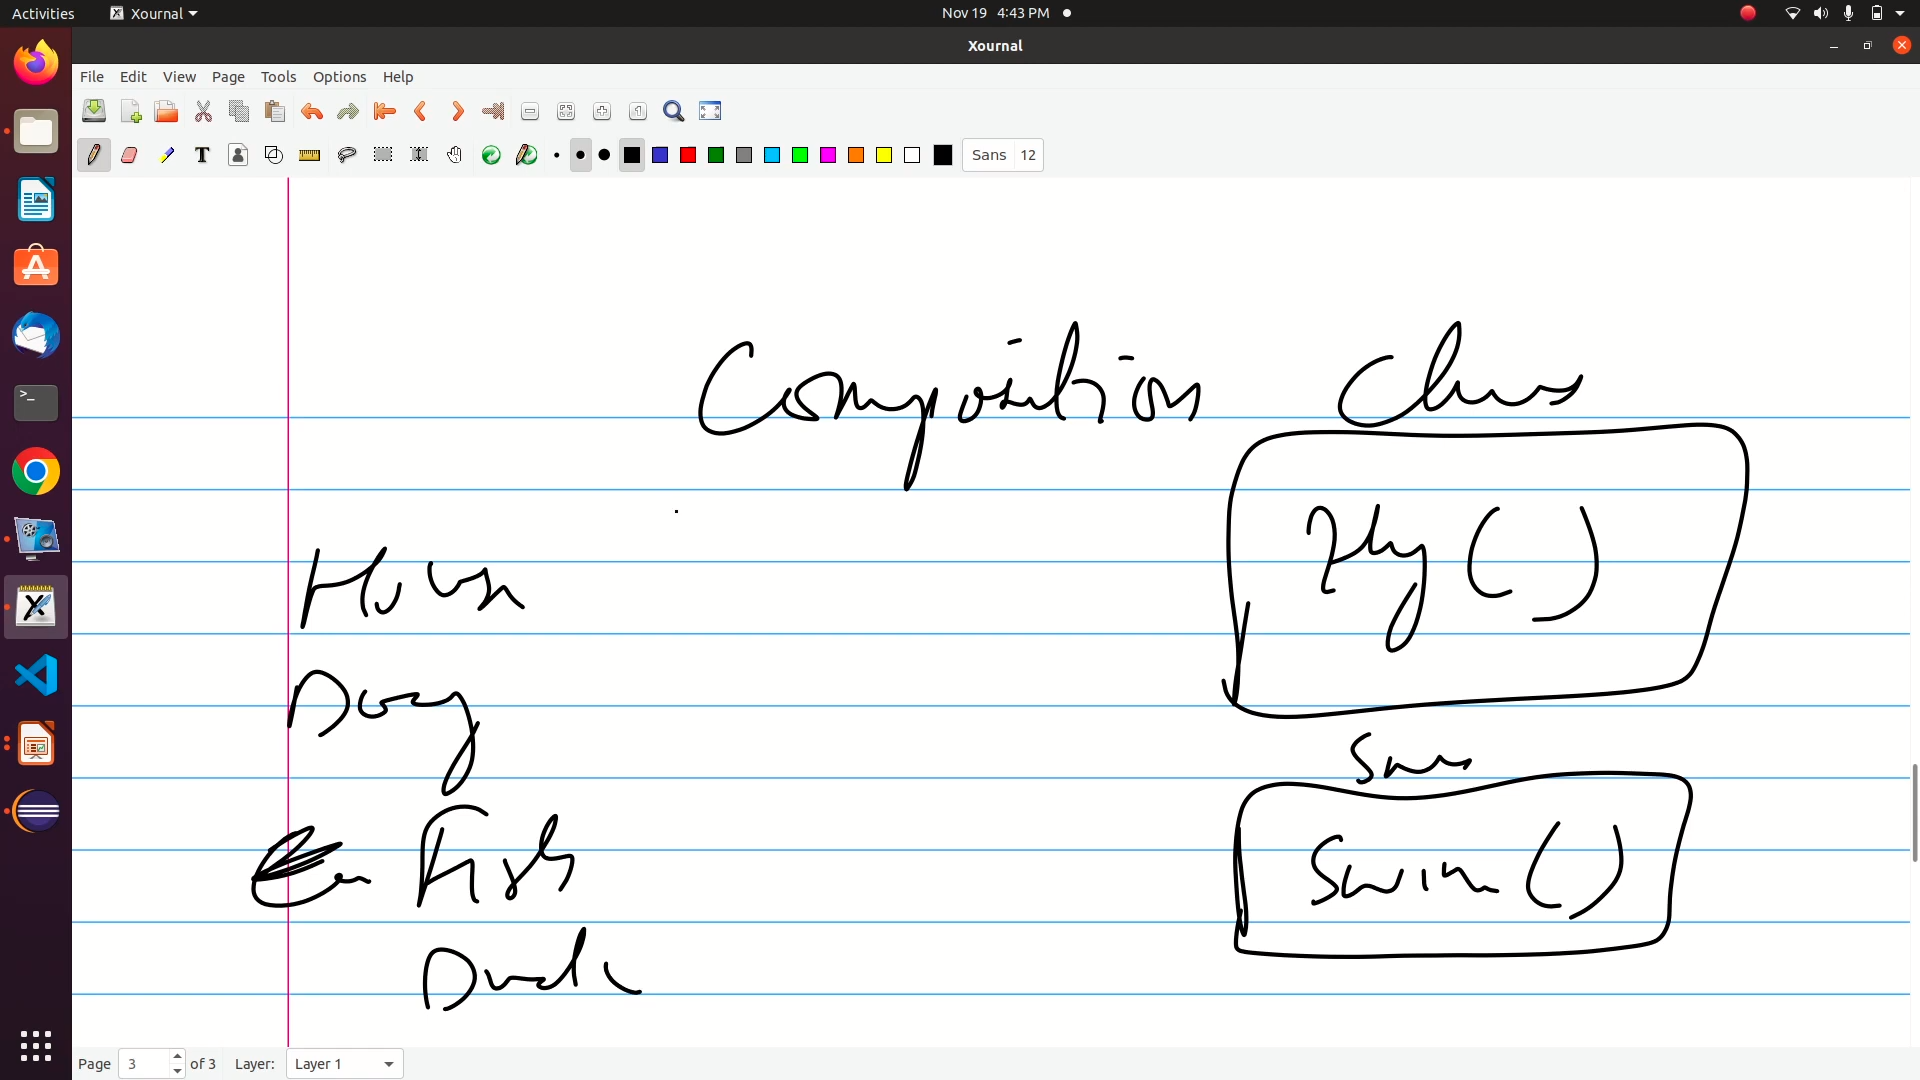 Activities Xournal Nov 19 4:43 PM
Xournal
File Edit View Page Tools Options Help
Sans 12
Composition Class
Fly ( )
Dog
Swim ( )
Fish
Duck
Page 3 of 3 Layer: Layer 1